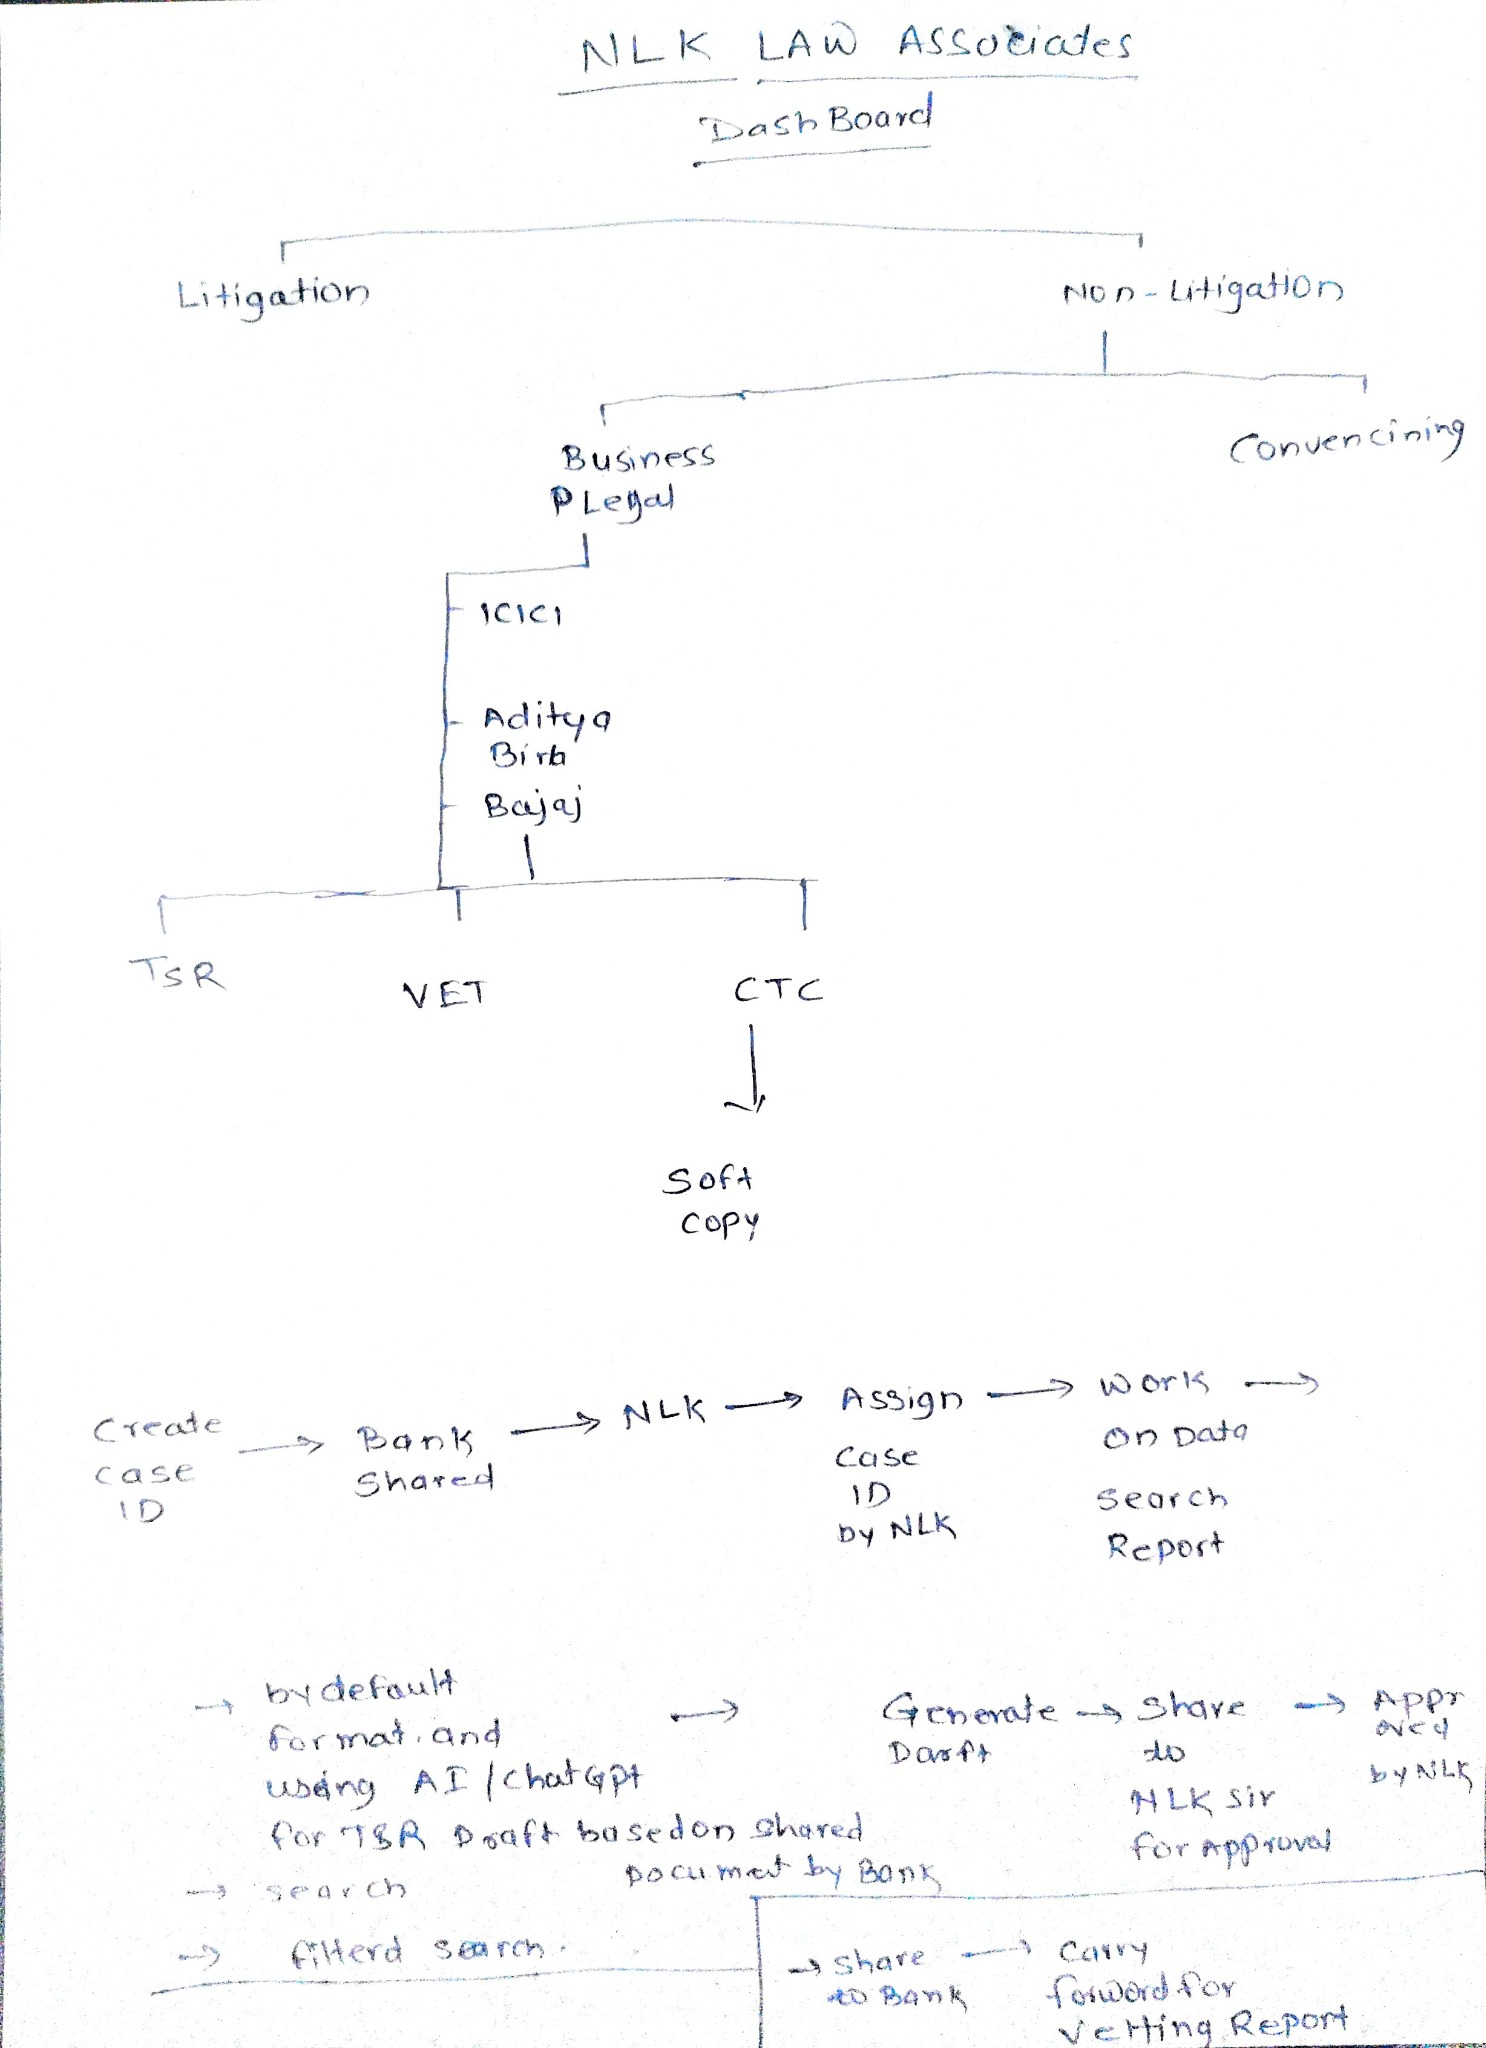 NLK LAW Associates
DashBoard
Litigation
Non-Litigation
Business
P Legal
Convencining
ICICI
Aditya
Birla
Bajaj
TSR
VET
CTC
Soft
copy
Create
case
ID
→ Bank
Shared
→ NLK
→ Assign
case
ID
by NLK
→ Work
on Data
Search
Report
→
→ by default
format. and
using AI / ChatGpt
for TSR Draft based on shared
Documet by Bank
→ search
→ filterd search.
→ Generate
Darft
→ Share
to
NLK sir
for Approval
→ Appr
oved
by NLK
→ Share
to Bank
→ Carry
forword for
Vetting Report